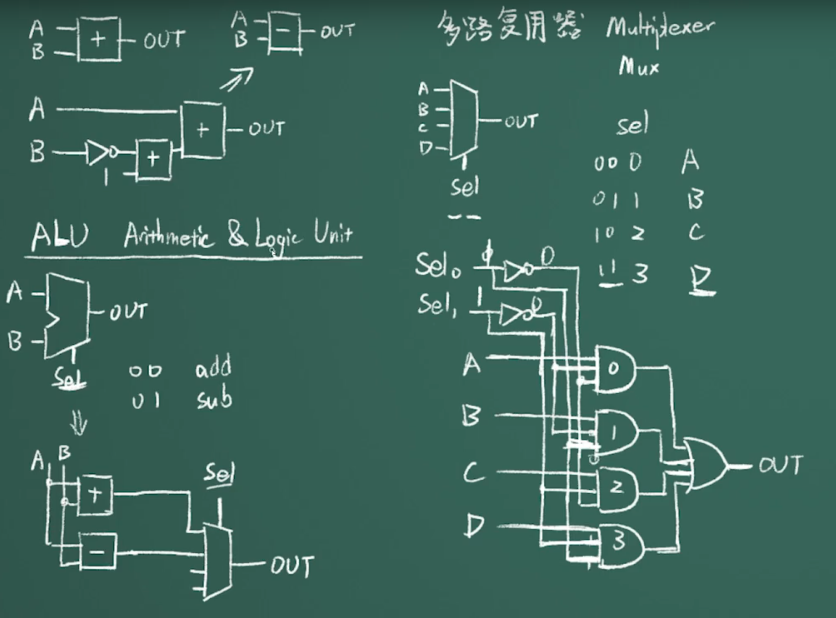 A
B
+
OUT
A
B
-
OUT
A
B
1
+
+
OUT
ALU Arithmetic & Logic Unit
A
B
OUT
Sel
00 add
01 sub
A B
+
-
Sel
OUT
多路复用器 Multiplexer
Mux
A
B
C
D
OUT
sel
--
sel
00 0 A
01 1 B
10 2 C
11 3 D
Sel₀
Sel₁
1
0
A
B
C
D
0
1
2
3
OUT